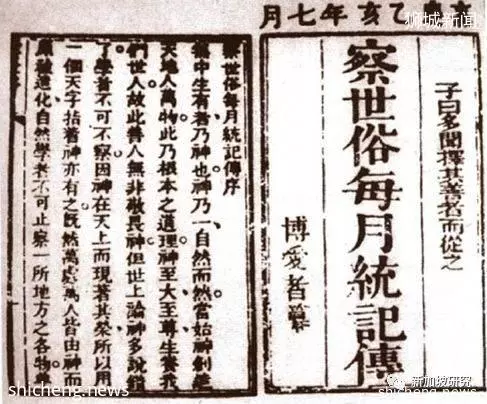 狮城新闻
乙亥年七月
子曰多聞擇其善者而從之
察世俗每月統記傳
博愛者纂
察世俗每月統記傳序
無中生有者乃神也神乃一自然而然當始神創造
天地人萬物此乃根本之道理神至大至尊生養我
們世人故此善人無非敬畏神但世上論神多說錯
了學者不可不察因神在天上而現著其榮所以用
一個天字指著神亦有之既然萬處萬人皆由神而
原被造化自然學者不可止察一所地方之各物
shicheng.news
新加坡研究
shicheng.news